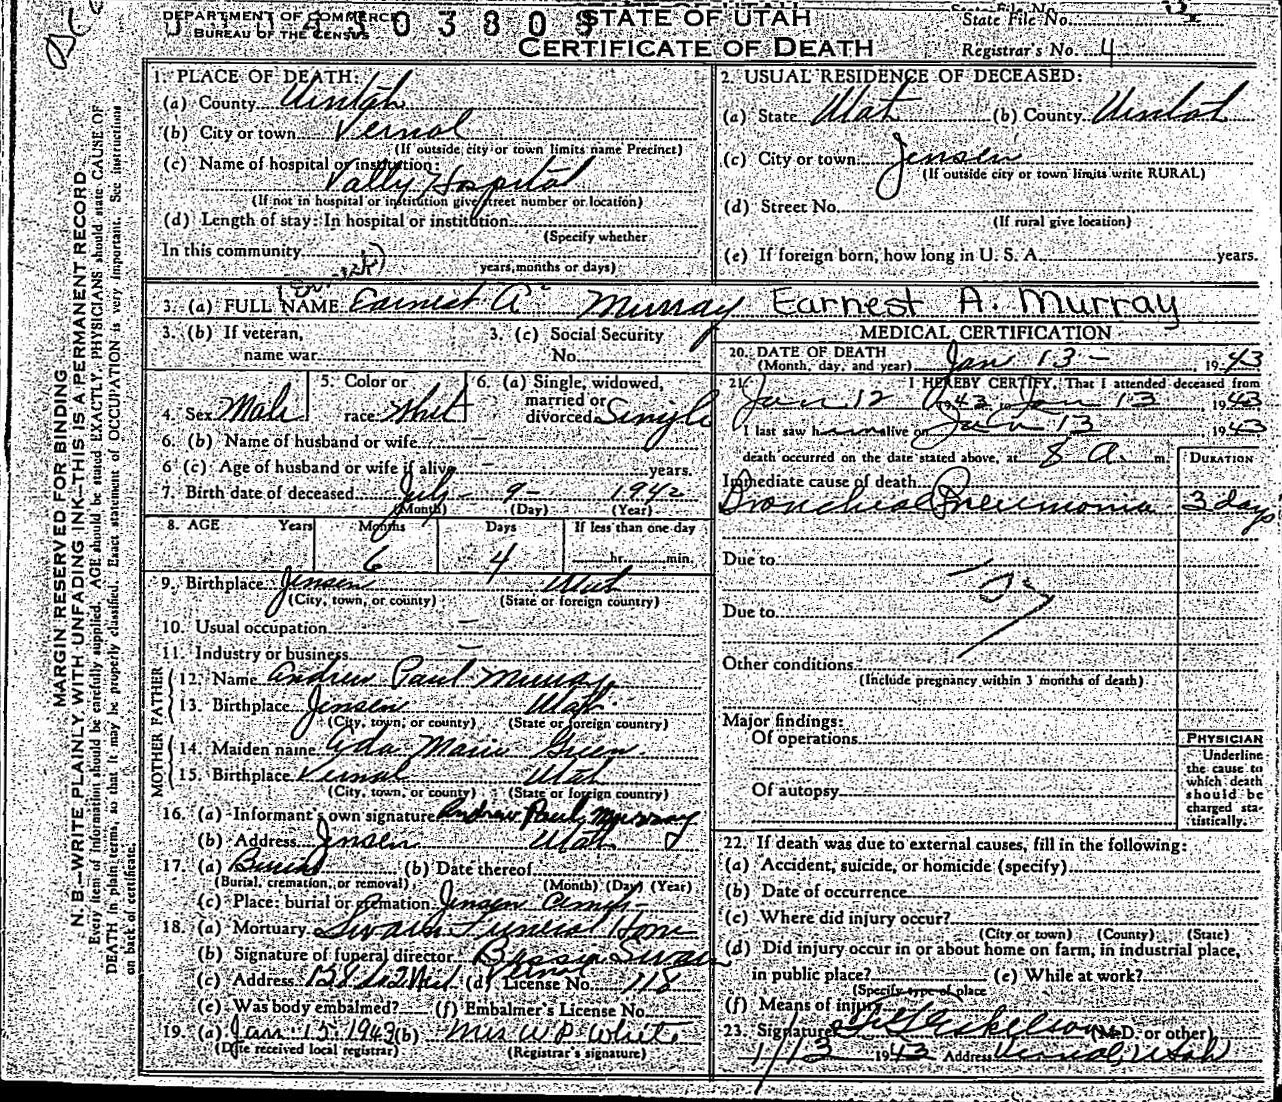 DEPARTMENT OF COMMERCE
BUREAU OF THE CENSUS
STATE OF UTAH
CERTIFICATE OF DEATH
State File No.
Registrar's No. 4
MARGIN RESERVED FOR BINDING
N. B.—WRITE PLAINLY, WITH UNFADING INK—THIS IS A PERMANENT RECORD.
Every item of information should be carefully supplied. AGE should be stated EXACTLY. PHYSICIANS should state CAUSE OF
DEATH in plain terms, so that it may be properly classified. Exact statement of OCCUPATION is very important. See instructions
on back of certificate.
1. PLACE OF DEATH:
(a) County Uintah
(b) City or town Vernal
(If outside city or town limits name Precinct)
(c) Name of hospital or institution:
Vally Hospital
(If not in hospital or institution give street number or location)
(d) Length of stay: In hospital or institution
(Specify whether
In this community
years, months or days)
2. USUAL RESIDENCE OF DECEASED:
(a) State Utah (b) County Uintah
(c) City or town Jensen
(If outside city or town limits write RURAL)
(d) Street No.
(If rural give location)
(e) If foreign born, how long in U. S. A. years.
3. (a) FULL NAME Earnest A. Murray Earnest A. Murray
3. (b) If veteran,
name war
3. (c) Social Security
No.
4. Sex Male
5. Color or
race Whit
6. (a) Single, widowed,
married or
divorced Single
6. (b) Name of husband or wife —
6 (c) Age of husband or wife if alive — years.
7. Birth date of deceased July - 9 - 1942
(Month) (Day) (Year)
8. AGE Years Months Days If less than one day
6 4 hr. min.
9. Birthplace Jensen Utah
(City, town, or county) (State or foreign country)
10. Usual occupation —
11. Industry or business —
FATHER
12. Name Andrew Paul Murray
13. Birthplace Jensen Utah
(City, town, or county) (State or foreign country)
MOTHER
14. Maiden name Maria Green
15. Birthplace Vernal Utah
(City, town, or county) (State or foreign country)
16. (a) Informant's own signature Andrew Paul Murray
(b) Address Jensen Utah
17. (a) Burial (b) Date thereof
(Burial, cremation, or removal) (Month) (Day) (Year)
(c) Place: burial or cremation Jensen
18. (a) Mortuary Swain Funeral Home
(b) Signature of funeral director Swain
(c) Address Vernal (d) License No. 118
(e) Was body embalmed? (f) Embalmer's License No.
19. (a) Jan. 15. 1943 (b) Mrs W P White
(Date received local registrar) (Registrar's signature)
MEDICAL CERTIFICATION
20. DATE OF DEATH
(Month, day, and year) Jan 13 - 1943
21. I HEREBY CERTIFY, That I attended deceased from
Jan 12 1943 to Jan 13 1943
I last saw h alive on Jan 13 1943
death occurred on the date stated above, at 8 a. m.
DURATION
Immediate cause of death
Bronchial Pneumonia 3 days
Due to
Due to
Other conditions
(Include pregnancy within 3 months of death)
Major findings:
Of operations
Of autopsy
PHYSICIAN
Underline
the cause to
which death
should be
charged sta-
tistically.
22. If death was due to external causes, fill in the following:
(a) Accident, suicide, or homicide (specify)
(b) Date of occurrence
(c) Where did injury occur?
(City or town) (County) (State)
(d) Did injury occur in or about home on farm, in industrial place,
in public place? (e) While at work?
(Specify type of place
(f) Means of injury
23. Signature (M.D. or other)
1/13 1943 Address Vernal, Utah